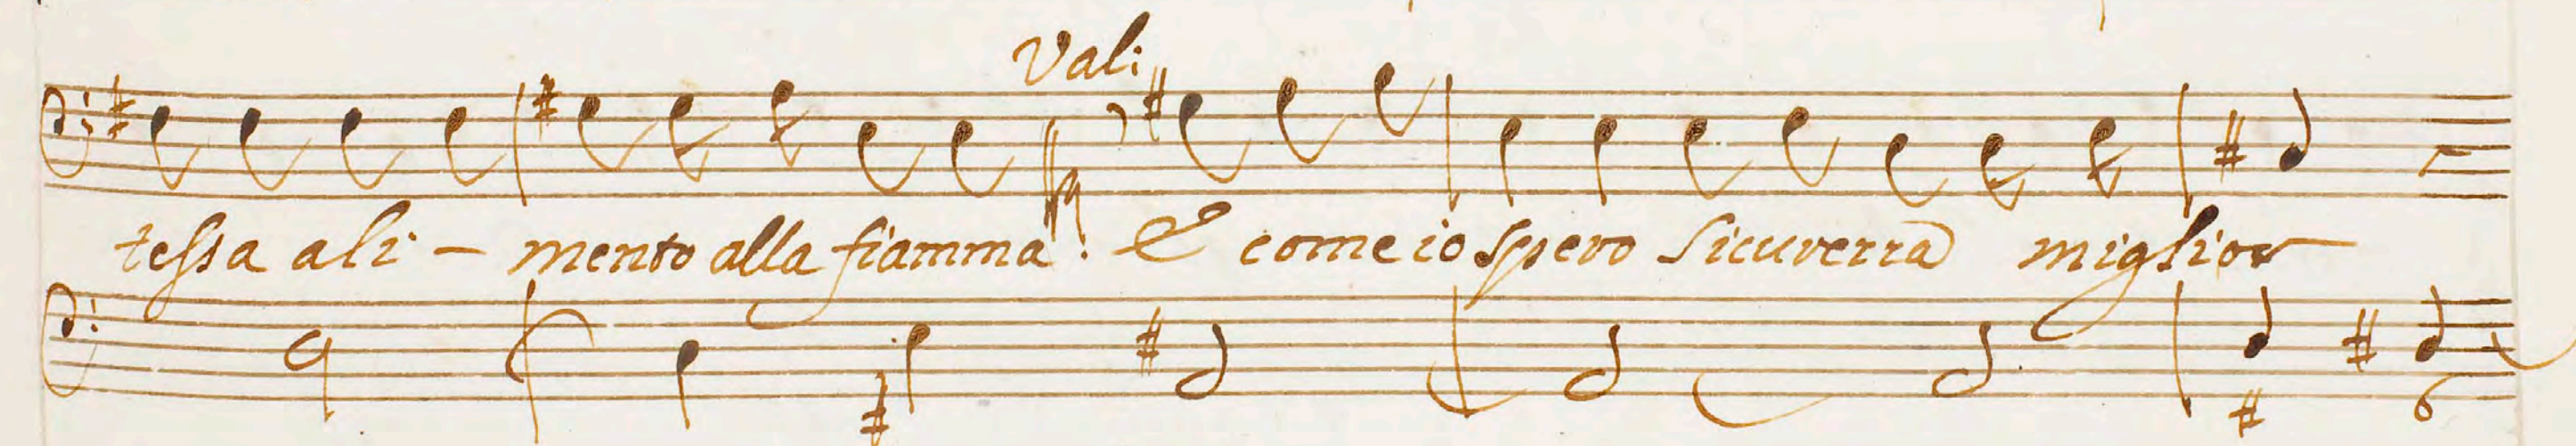 Val:
tessa ali - mento alla fiamma. E come io spero sicuverrà miglior
6